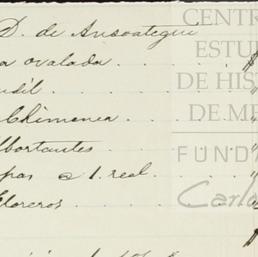 D. de Ansoategui
a ovalada . . . $
usil . . . "
Chimenea . . "
lbortantes . "
pas a 1. real . "
Floreros . . . "
$
CENTR
ESTU
DE HIS
DE ME
FUND
Carlo